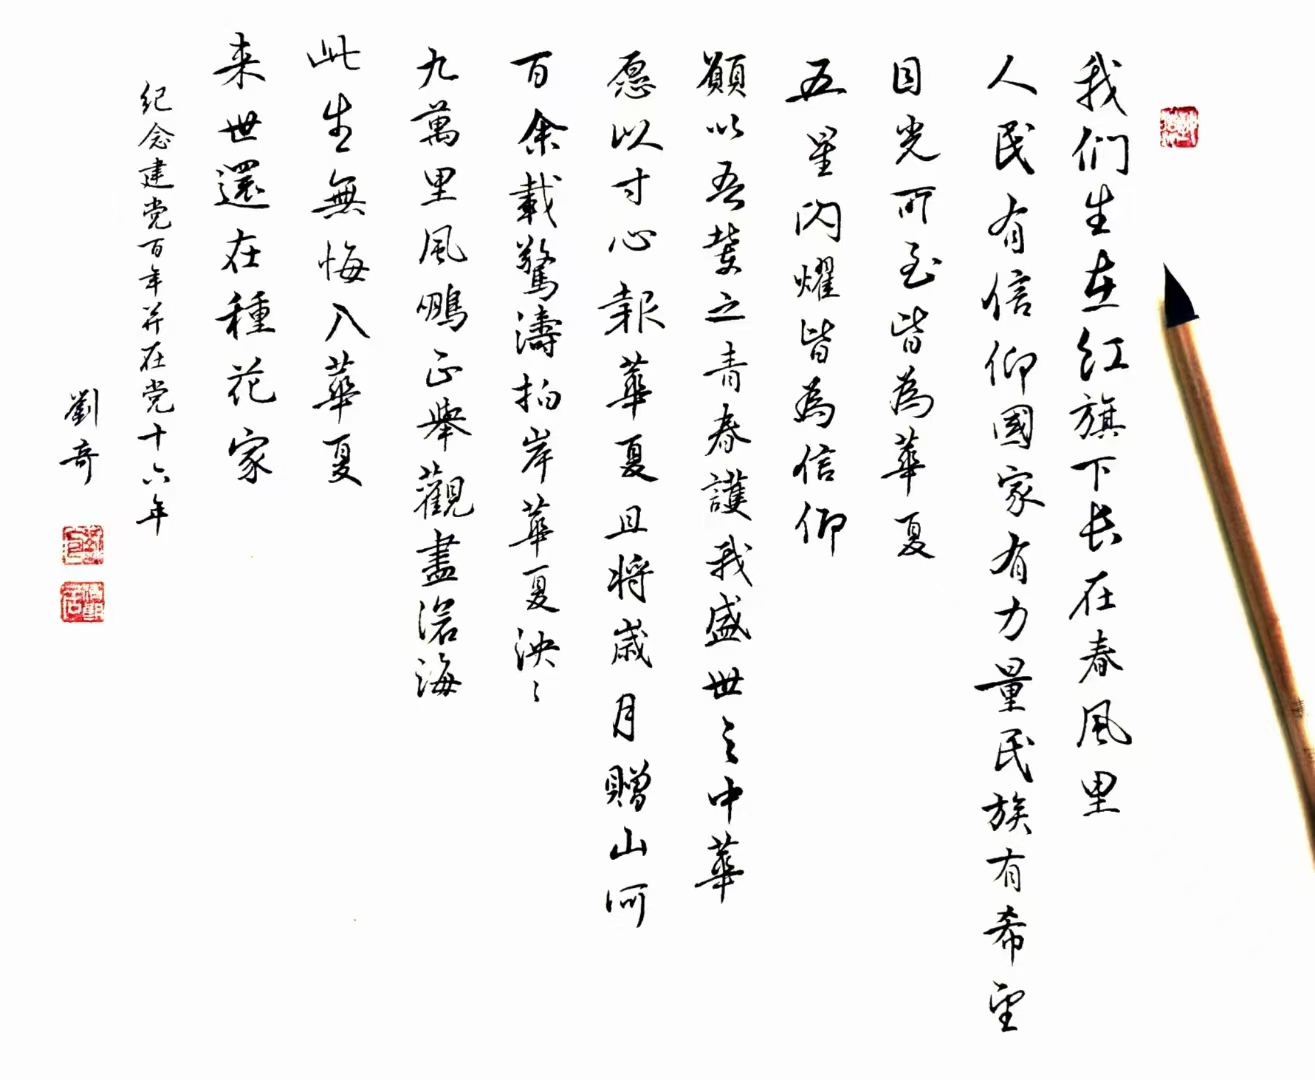 我们生在红旗下长在春風里
人民有信仰國家有力量民族有希望
目光所至皆為華夏
五星闪耀皆為信仰
願以吾輩之青春護我盛世之中華
愿以寸心報華夏且将歲月贈山河
百余載驚濤拍岸華夏泱〻
九萬里風鵬正舉觀盡滄海
此生無悔入華夏
来世還在種花家
纪念建党百年并在党十六年
劉奇